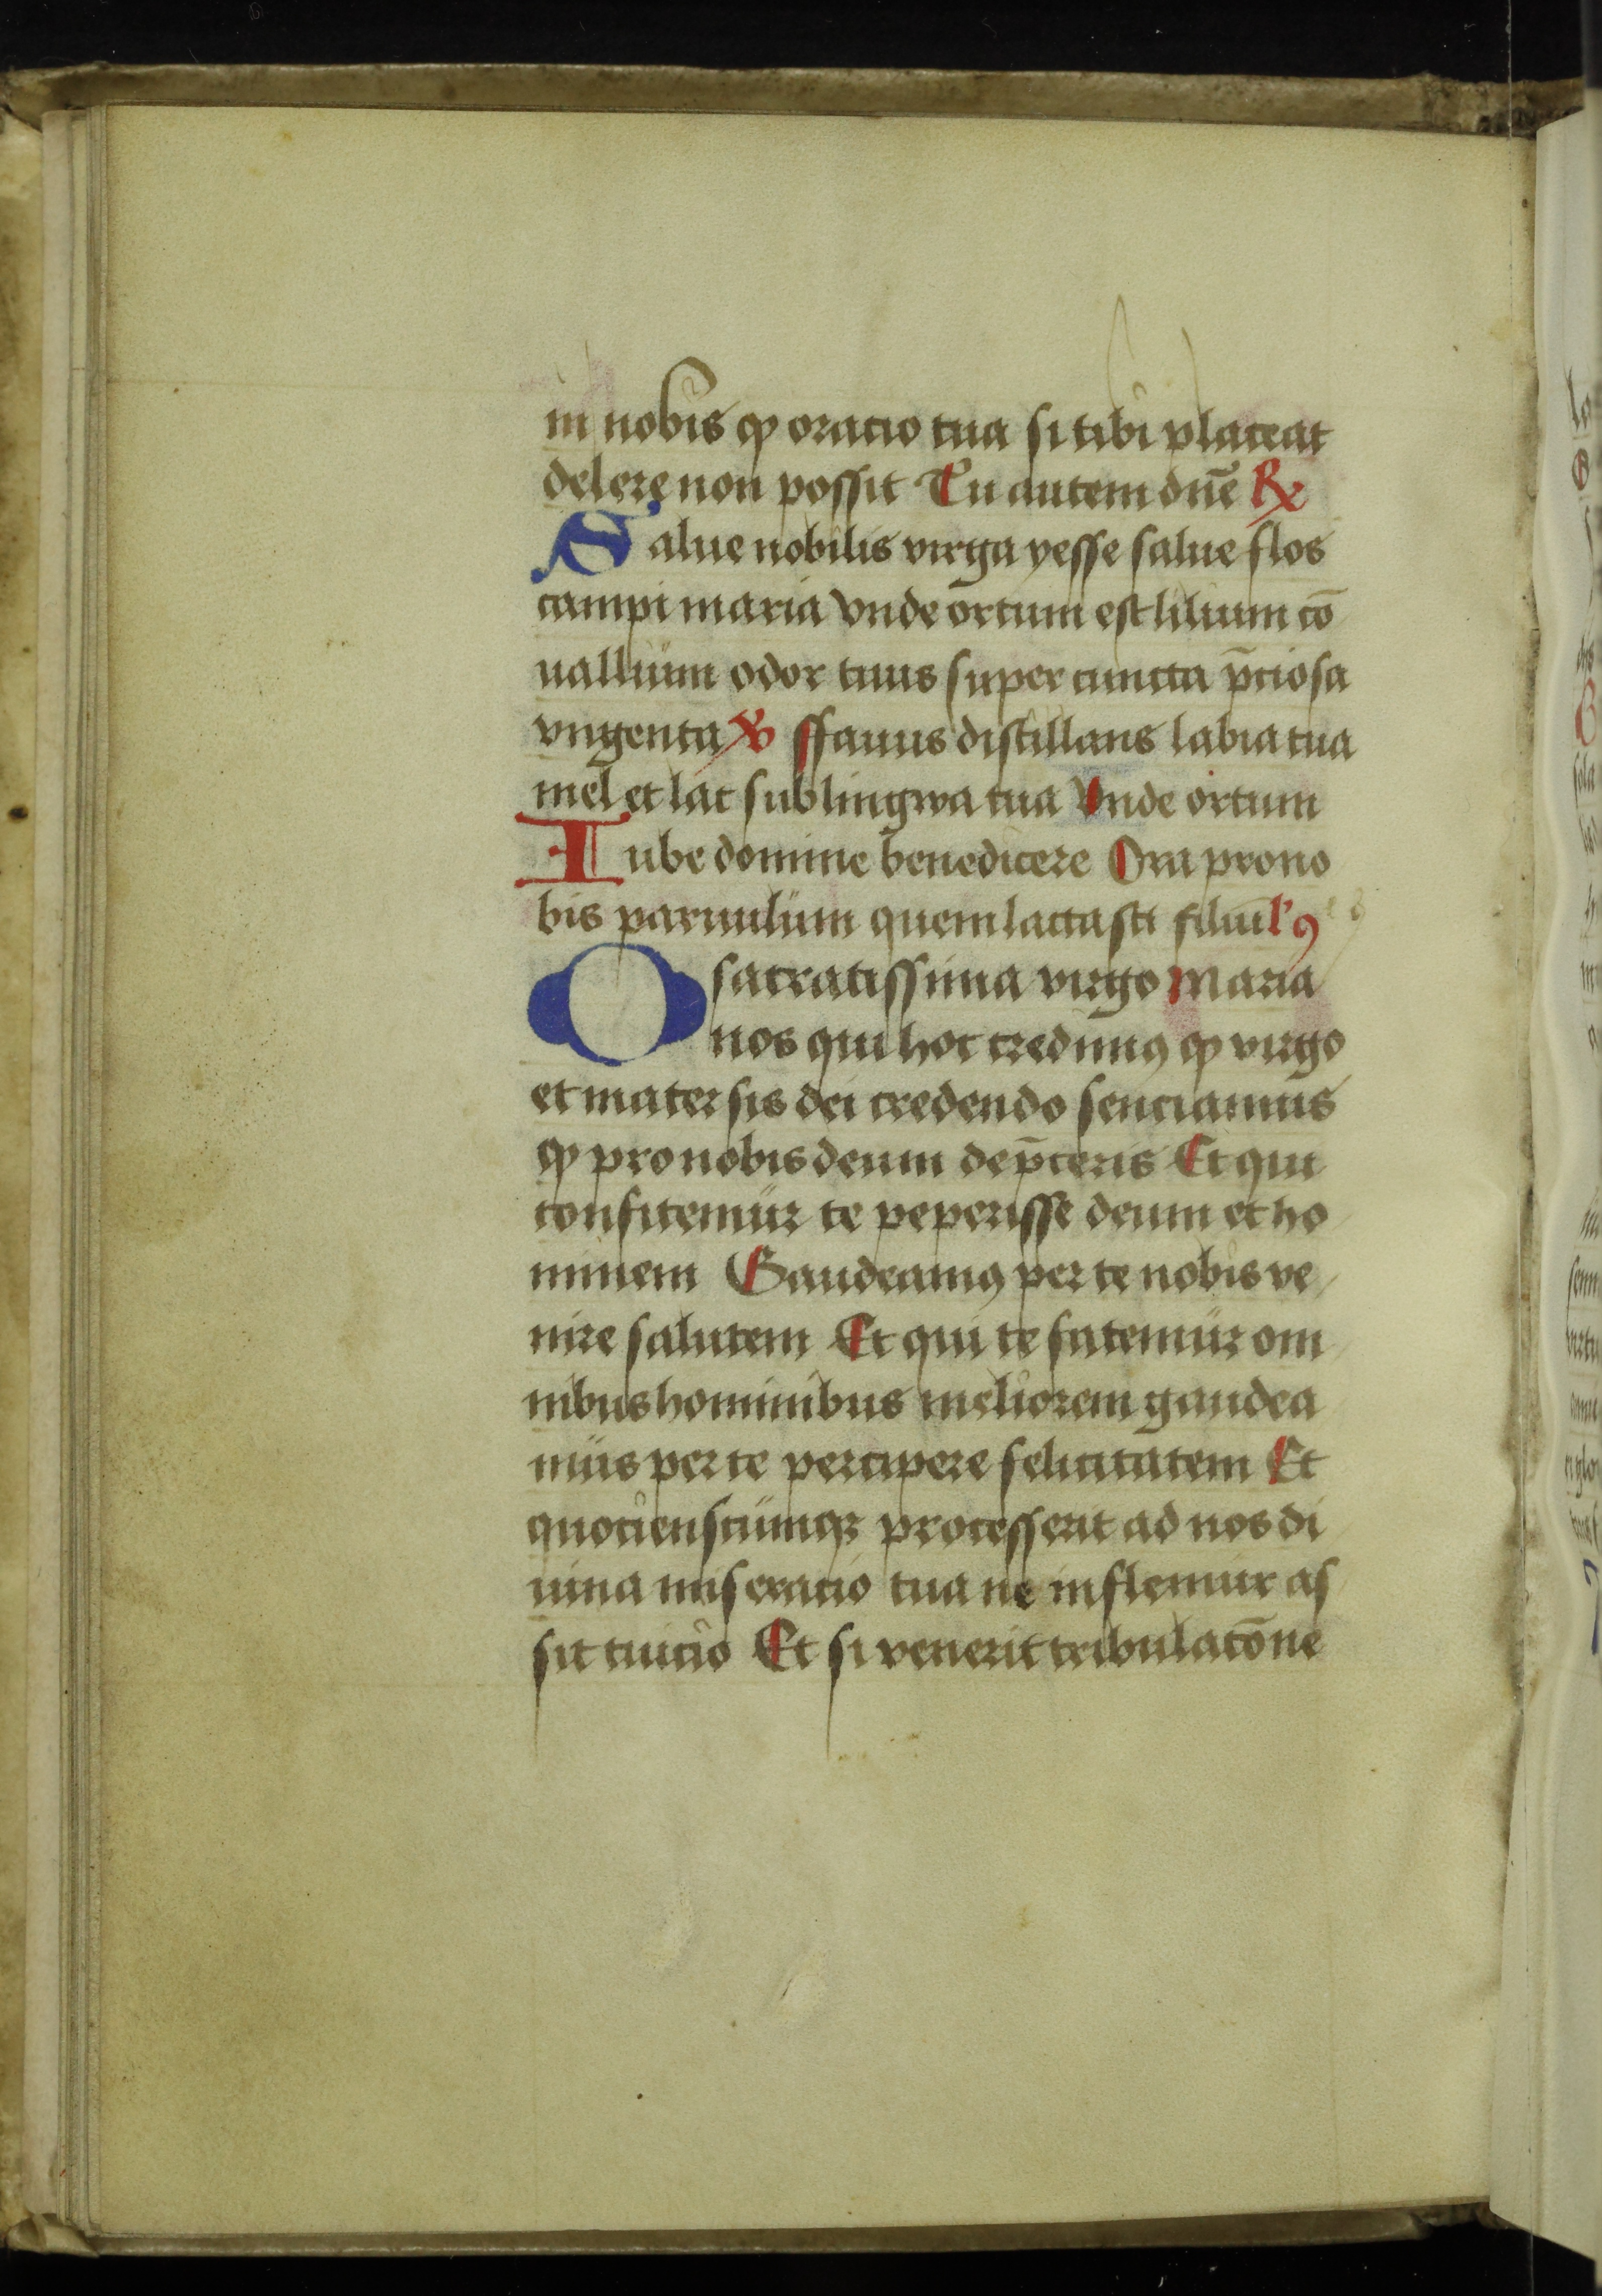 in nobis ꝙ oracio tua si tibi placeat
delere non possit Tu autem dn̄e ℞
Salue nobilis virga yesse salue flos
campi maria vnde ortum est lilium cō
uallium odor tuus super cuncta p̄ciosa
vngenta ℣ ffauus distillans labia tua
mel et lac sub lingwa tua Vnde ortum
Iube domine benedicere Ora pro no
bis paruulum quem lactasti filiū
O sacratissima virgo Maria
nos qui hoc credimꝰ ꝙ virgo
et mater sis dei credendo senciamus
ꝙ pro nobis deum dep̄ceris Et qui
confitemur te peperisse deum et ho
minem Gaudeamꝰ per te nobis ve
nire salutem Et qui te fatemur om
nibus hominibus meliorem gaudea
mus per te percipere felicitatem Et
quocienscumqꝫ processerit ad nos di
uina miseracio tua ne inflemur as
sit tuicio Et si venerit tribulatōne